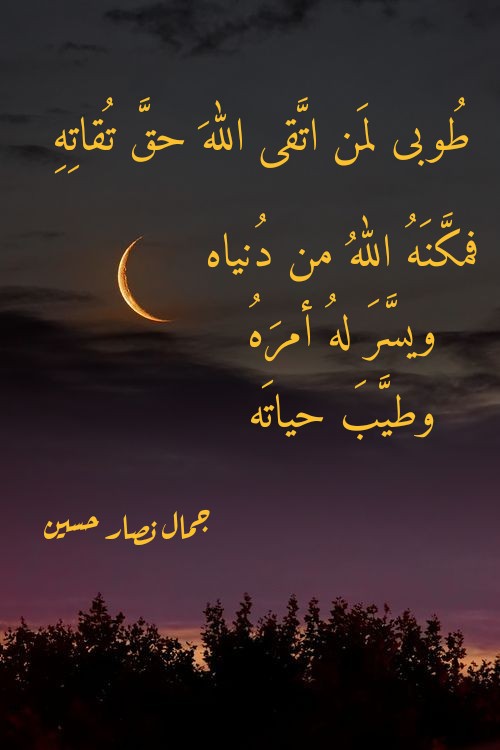 طُوبى لمَن اتَّقى اللهَ حقَّ تُقاتِهِ
فمكَّنَهُ اللهُ من دُنياه
ويسَّرَ لهُ أمرَهُ
وطيَّبَ حياتَه
جمال نصار حسين